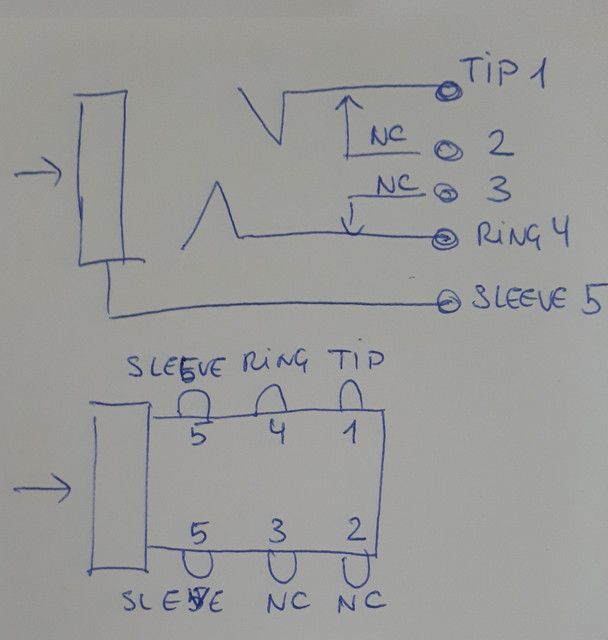 TIP 1
NC 2
NC 3
RING 4
SLEEVE 5
SLEEVE RING TIP
5 4 1
5 3 2
SLEEVE NC NC